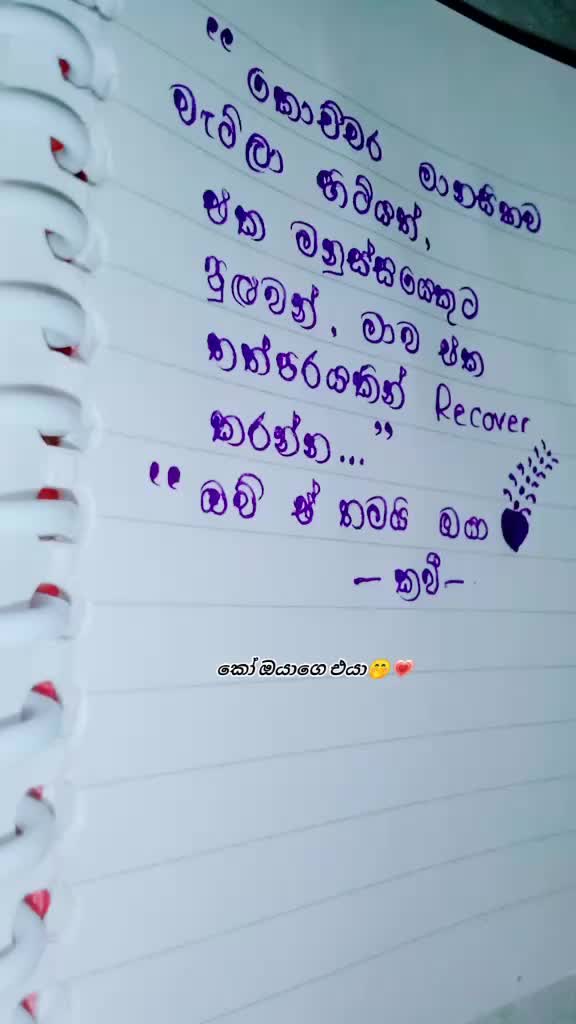 “ කොච්චර මානසිකව
වැටිලා හිටියත්,
ඒක මනුස්සයෙකුට
පුළුවන්, මාව ඒක
තත්පරයකින් Recover
කරන්න...”
“ ඔව් ඒ තමයි ඔයා
– කවී –
කෝ ඔයාගෙ එයා🤭💗